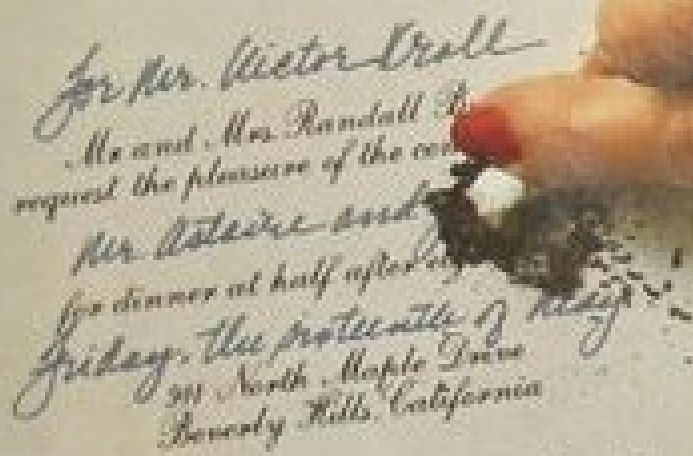 for Mr. Victor Kroll
Mr and Mrs Randall
request the pleasure of the
Mr Astaire and
for dinner at half after
Friday, the sixteenth of May
911 North Maple Drive
Beverly Hills, California